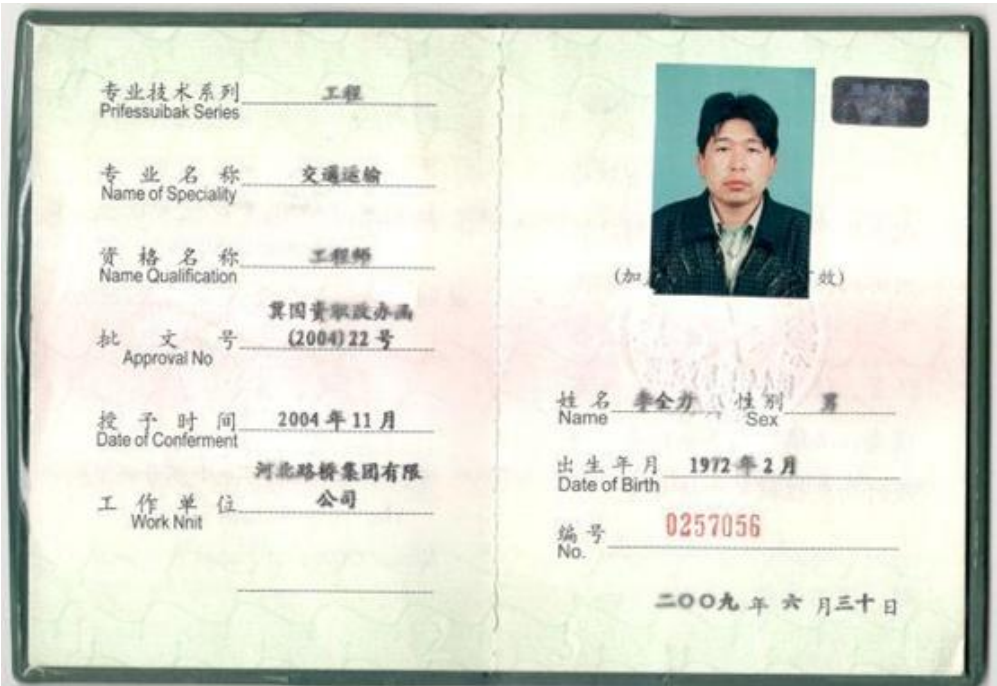 专业技术系列 工程
Prifessuibak Series
专业名称 交通运输
Name of Speciality
资格名称 工程师
Name Qualification
冀国资职改办函
批文号 (2004)22号
Approval No
授予时间 2004年11月
Date of Conferment
河北路桥集团有限
工作单位 公司
Work Nnit
(加 效)
姓名 李全力 性别 男
Name Sex
出生年月 1972年2月
Date of Birth
编号 0257056
No.
二〇〇九年六月三十日